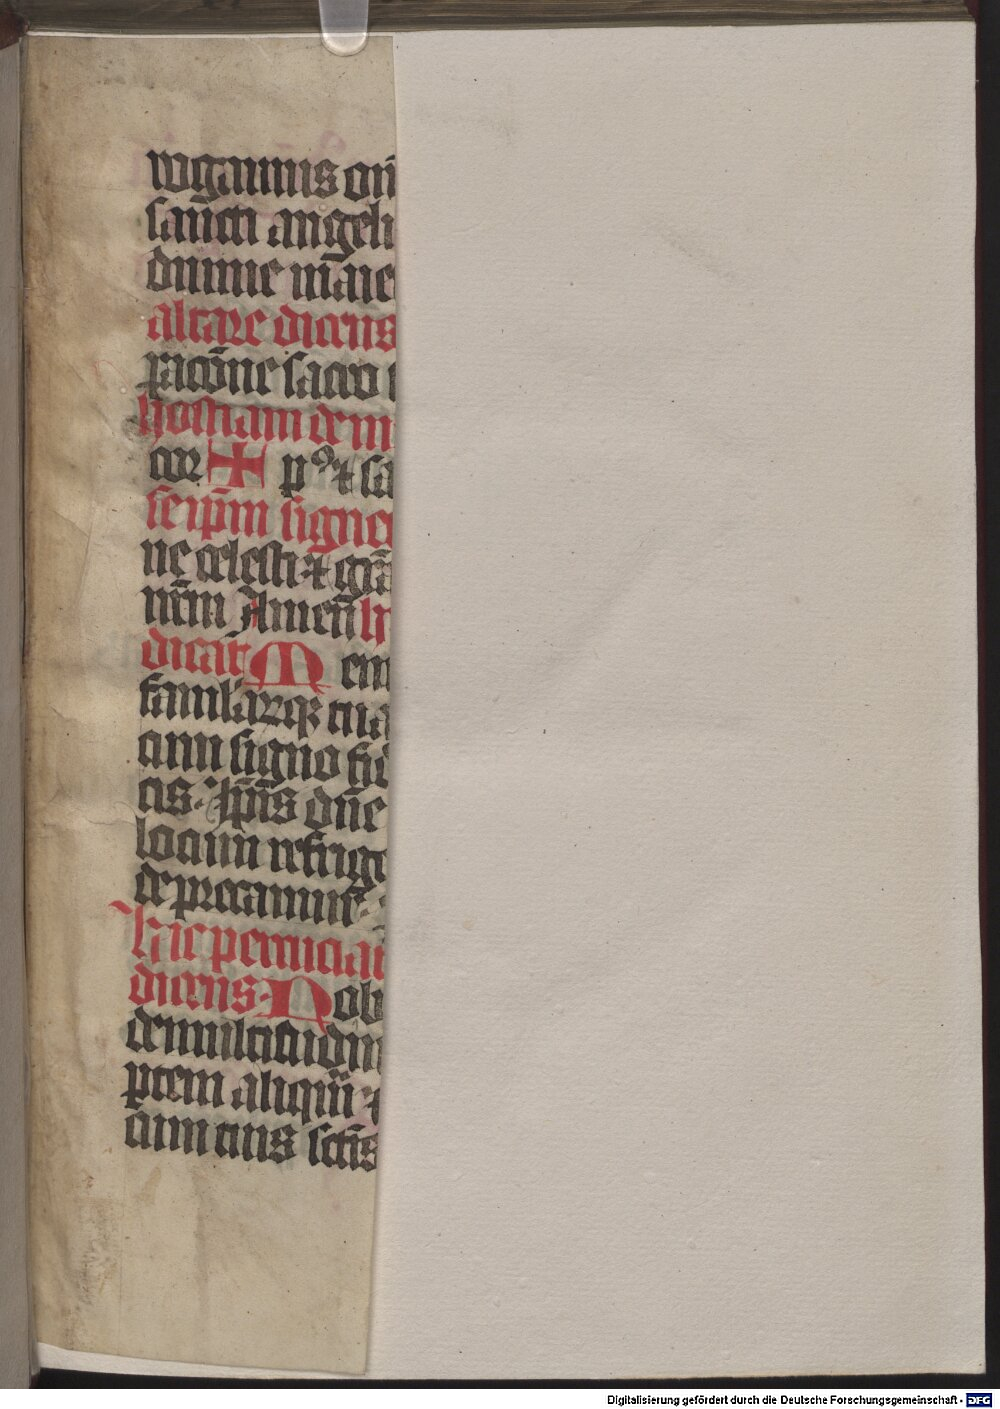 rogamus om̄
sancti angeli
diuine maies
altare dicens
ꝑticiōne sacro
hostiam demu
cor ✚ pꝰ ⁊ sa
seip̄m signet
ne celesti ⁊ gr̄a
nr̄m Amen h
dicat Mem
famularūqꝫ tua
cum signo fid
cis. Ip̄is dn̄e
locum refrige
deprecamur.
hic percuciat
dicens. Nob
de multitudin
ꝑtem aliquā ⁊
cum tuis sctīs
Digitalisierung gefördert durch die Deutsche Forschungsgemeinschaft - DFG